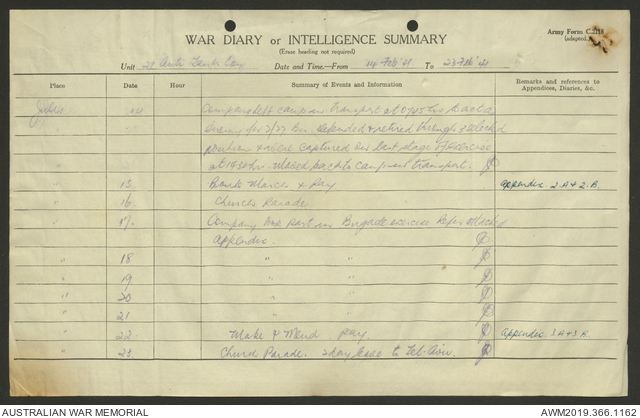 Army Form C.2118
(adapted)
WAR DIARY or INTELLIGENCE SUMMARY
(Erase heading not required)
Unit 21 Anti Tank Coy Date and Time—From 14 Feb 41 To 23 Feb 41
Place Date Hour Summary of Events and Information Remarks and references to Appendices, Diaries, &c.
Julis 14 Company left camp in transport at 0745 hrs to act as
enemy for 2/27 Bn. Defended & retired through selected
position & were captured in last stage of exercise
at 1430 hrs. Moved back to camp in transport.
" 15 Route March & Pay appendix 2A & 2B.
" 16 Church Parade
" 17 Company took part in Brigade exercise Refer attached
Appendix.
" 18 " "
" 19 " "
" 20 " "
" 21 " "
" 22 Make & Mend Pay. Appendix 3A & 3B.
" 23 Church Parade. 1 day leave to Tel-Aviv.
AUSTRALIAN WAR MEMORIAL AWM2019.366.1162